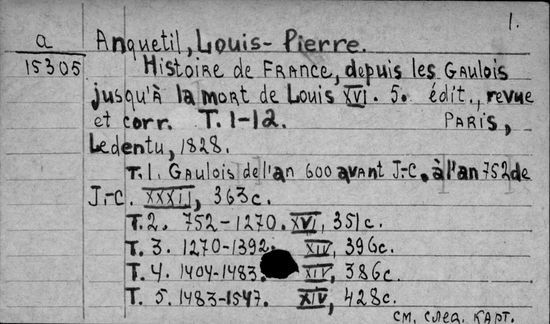 1.
a
15305
Anquetil, Louis-Pierre.
Histoire de France, depuis les Gaulois
jusqu'à la mort de Louis XVI. 5. édit., revue
et corr. T. 1-12. Paris,
Ledentu, 1828.
T. 1. Gaulois de l'an 600 avant J.-C. à l'an 752 de
J.-C. XXXII, 363 c.
T. 2. 752-1270. XVI, 351 c.
T. 3. 1270-1392. XIV, 396 c.
T. 4. 1404-1483. XIV, 386 c.
T. 5. 1483-1547. XIV, 428 c.
см. след. карт.